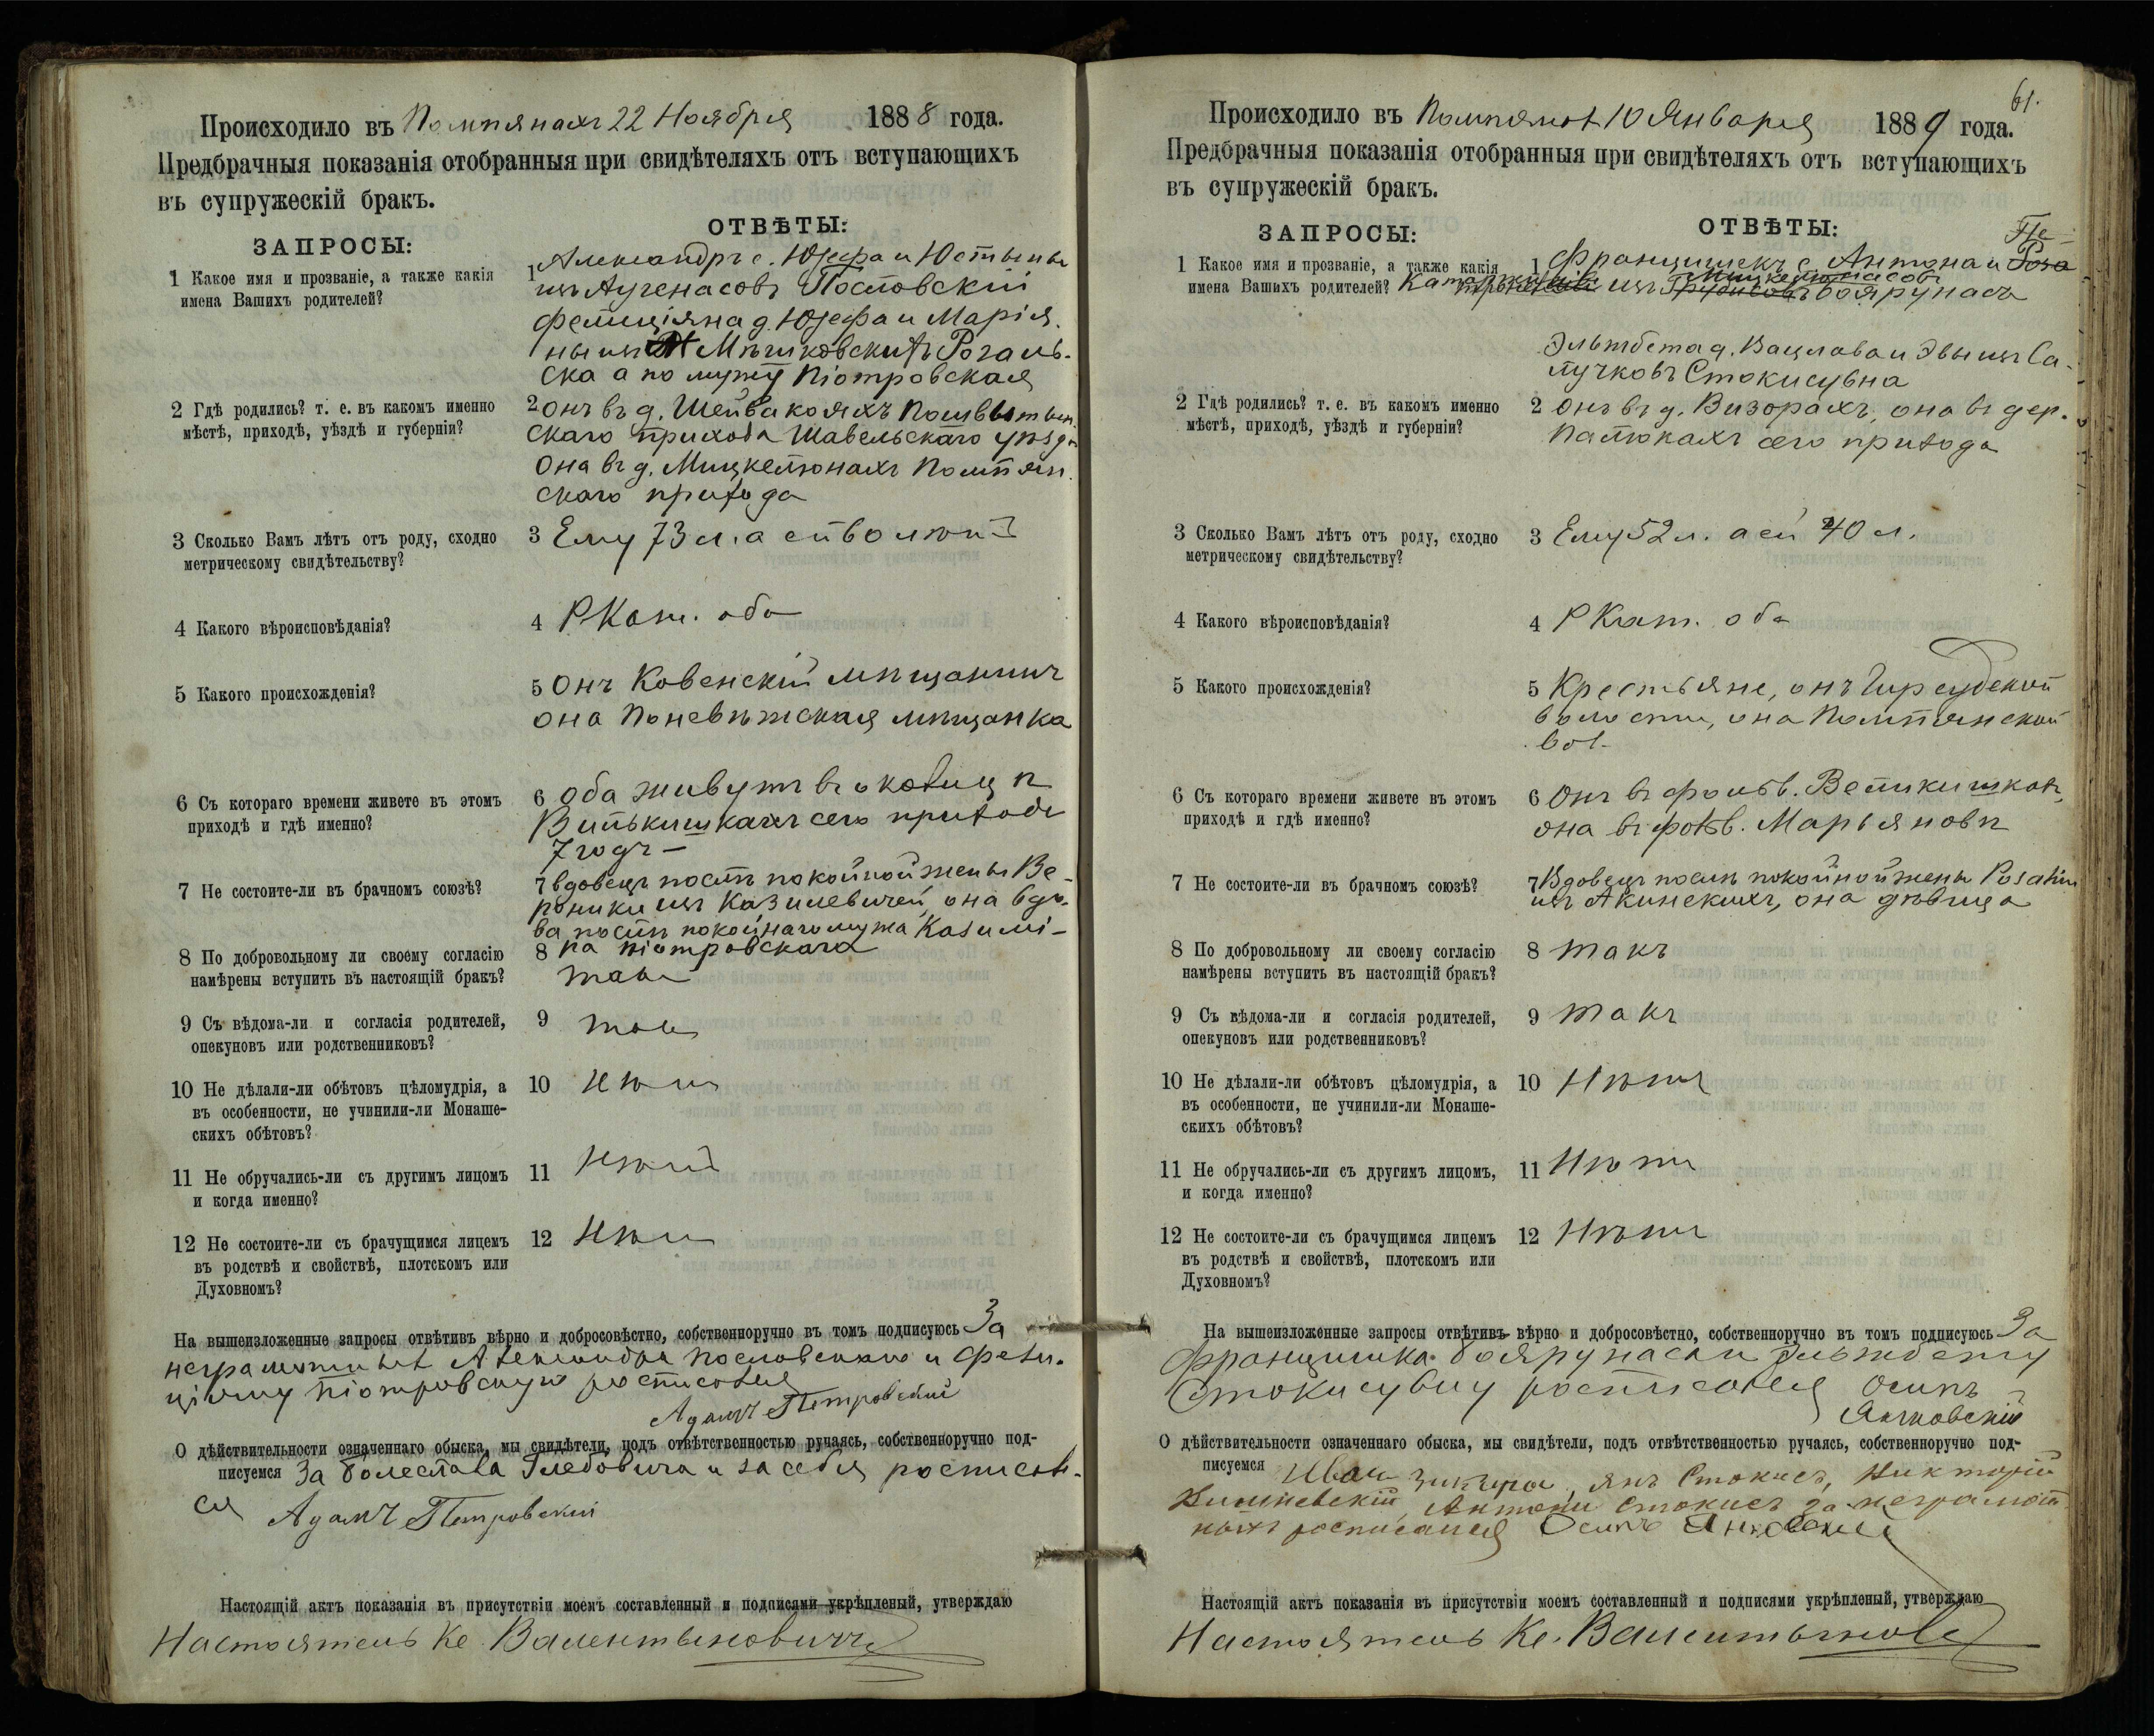 Происходило въ Помпянахъ 22 Ноября 1888 года.
Предбрачныя показанія отобранныя при свидѣтеляхъ отъ вступающихъ
въ супружескій бракъ.
ЗАПРОСЫ:
ОТВѢТЫ:
1 Какое имя и прозваніе, а также какія
имена Вашихъ родителей?
1 Александръ с. Юзефа и Юстыны
изъ Пословскій
Фелиціяна д. Юзефа и Марія-
ны изъ Мѣшковскихъ Рогаль-
ска а по мужу Піотровская
2 Гдѣ родились? т. е. въ какомъ именно
мѣстѣ, приходѣ, уѣздѣ и губерніи?
2 онъ въ д.
скаго прихода Шавельскаго уѣзда
Она въ д. Мицкелюнахъ Помпян-
скаго прихода
3 Сколько Вамъ лѣтъ отъ роду, сходно
метрическому свидѣтельству?
3 Ему 73 л. а ей 60 лѣтъ
4 Какого вѣроисповѣданія?
4 РКат. оба
5 Какого происхожденія?
5 Онъ Ковенскій мѣщанинъ
она Поневѣжская мѣщанка
6 Съ котораго времени живете въ этомъ
приходѣ и гдѣ именно?
6 оба живутъ въ околицѣ
Вилькишкахъ сего приходе
7 годъ —
7 Не состоите-ли въ брачномъ союзѣ?
7 вдовецъ послѣ покойной жены Ве-
роники изъ Казилевичей, она вдо-
ва послѣ покойнаго мужа Казимі-
ра Піотровскаго
8 По добровольному ли своему согласію
намѣрены вступить въ настоящій бракъ?
8 такъ
9 Съ вѣдома-ли и согласія родителей,
опекуновъ или родственниковъ?
9 такъ
10 Не дѣлали-ли обѣтовъ цѣломудрія, а
въ особенности, не учинили-ли Монаше-
скихъ обѣтовъ?
10 Нѣтъ
11 Не обручались-ли съ другимъ лицомъ
и когда именно?
11 Нѣтъ
12 Не состоите-ли съ брачущимся лицемъ
въ родствѣ и свойствѣ, плотскомъ или
Духовномъ?
12 Нѣтъ
На вышеизложенные запросы отвѣтивъ вѣрно и добросовѣстно, собственноручно въ томъ подписуюсь За
неграмотныхъ Александра Пословскаго и Фели-
ціяну Піотровскую росписался
Адамъ Петровскій
О дѣйствительности означеннаго обыска, мы свидѣтели, подъ отвѣтственностью ручаясь, собственноручно под-
писуемся За Болеслава Глебовича и за себя росписал-
ся Адамъ Петровскій
Настоящій актъ показанія въ присутствіи моемъ составленный и подписями укрѣпленый, утверждаю
Настоятель Кс. Валентыновичъ
61.
Происходило въ Помпянах 10 Января 1889 года.
Предбрачныя показанія отобранныя при свидѣтеляхъ отъ вступающихъ
въ супружескій бракъ.
ЗАПРОСЫ:
ОТВѢТЫ:
1 Какое имя и прозваніе, а также какія
имена Вашихъ родителей?
1 Францишекъ с. Антона и Роза
изъ Боярунасъ
Эльжбета д. Вацлава и Эвы изъ Са-
лучковъ Стокисувна
2 Гдѣ родились? т. е. въ какомъ именно
мѣстѣ, приходѣ, уѣздѣ и губерніи?
2 Онъ въ д. Визорахъ, она въ дер.
Палюкахъ сего прихода
3 Сколько Вамъ лѣтъ отъ роду, сходно
метрическому свидѣтельству?
3 Ему 52 л. а ей 40 л.
4 Какого вѣроисповѣданія?
4 РКат. оба
5 Какого происхожденія?
5 Крестьяне, онъ Гирсудской
волости, она Помпянской
вол.
6 Съ котораго времени живете въ этомъ
приходѣ и гдѣ именно?
6 Онъ въ фольв.
она въ фолв. Марьяновѣ
7 Не состоите-ли въ брачномъ союзѣ?
7 Вдовецъ послѣ покойной жены Розаліи
изъ Акинскихъ, она дѣвица
8 По добровольному ли своему согласію
намѣрены вступить въ настоящій бракъ?
8 такъ
9 Съ вѣдома-ли и согласія родителей,
опекуновъ или родственниковъ?
9 такъ
10 Не дѣлали-ли обѣтовъ цѣломудрія, а
въ особенности, не учинили-ли Монаше-
скихъ обѣтовъ?
10 Нѣтъ
11 Не обручались-ли съ другимъ лицомъ,
и когда именно?
11 Нѣтъ
12 Не состоите-ли съ брачущимся лицемъ
въ родствѣ и свойствѣ, плотскомъ или
Духовномъ?
12 Нѣтъ
На вышеизложенные запросы отвѣтивъ вѣрно и добросовѣстно, собственноручно въ томъ подписуюсь За
Францишка Боярунаса и Эльжбету
Стокисувну росписался Осипъ
Янковскій
О дѣйствительности означеннаго обыска, мы свидѣтели, подъ отвѣтственностью ручаясь, собственноручно под-
писуемся Иван Янъ Стокисъ, Викторій
Антони Стокисъ за неграмот-
ныхъ росписался Осипъ Янковскій
Настоящій актъ показанія въ присутствіи моемъ составленный и подписями укрѣпленый, утверждаю
Настоятель Кс. Валентынов